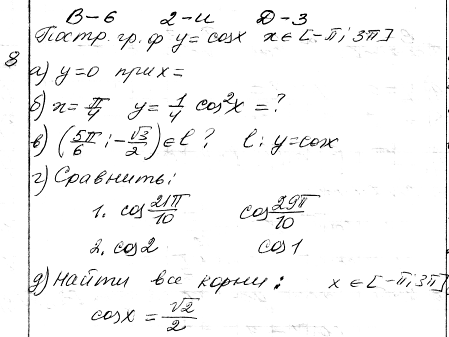 В-6 2-ч Д-3
8 Постр. гр. ф y = cosx x ∈ [-π; 3π]
а) y=0 при x =
б) x = π/4 y = 1/4 cos²x = ?
в) (5π/6; -√3/2) ∈ l ? l: y = cosx
г) Сравнить:
1. cos 21π/10 cos 29π/10
2. cos2 cos1
д) Найти все корни: x ∈ [-π; 3π]
cosx = √2/2